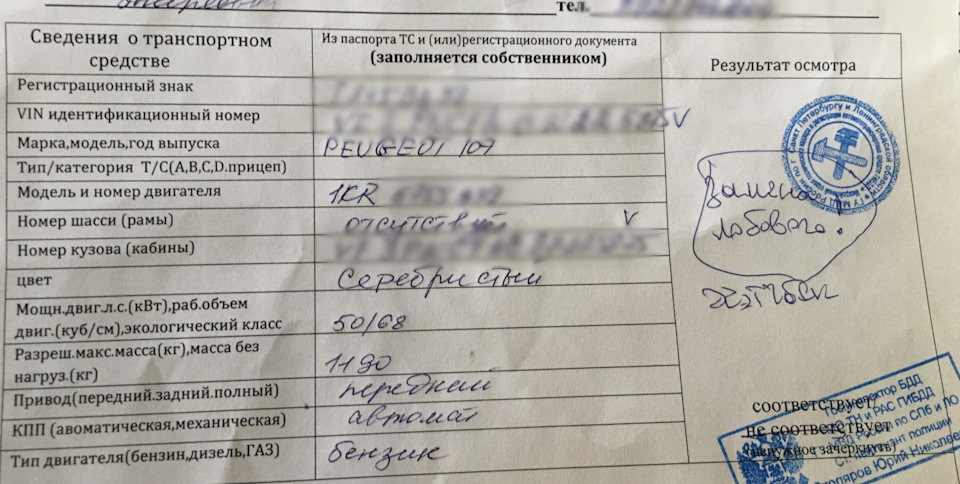 тел.
Сведения о транспортном средстве
Из паспорта ТС и (или)регистрационного документа
(заполняется собственником)
Результат осмотра
Регистрационный знак
VIN идентификационный номер V
Марка,модель,год выпуска PEUGEOT 107
Тип/категория Т/С(А,В,С,D.прицеп)
Модель и номер двигателя 1KR
Номер шасси (рамы) отсутствует V
Номер кузова (кабины)
цвет Серебристый
Мощн.двиг.л.с.(кВт),раб.объем
двиг.(куб/см),экологический класс 50/68
Разреш.макс.масса(кг),масса без
нагруз.(кг) 1190
Привод(передний.задний.полный) передний
КПП (авоматическая,механическая) автомат
Тип двигателя(бензин,дизель,ГАЗ) бензин
Замена
лобового.
соответствует/
не соответствует
(ненужное зачеркнуть)
Госинспектор БДД
ТН и РАС ГИБДД
МВД России по СПб и ЛО
Ст. лейтенант полиции
Столяров Юрий Николаевич